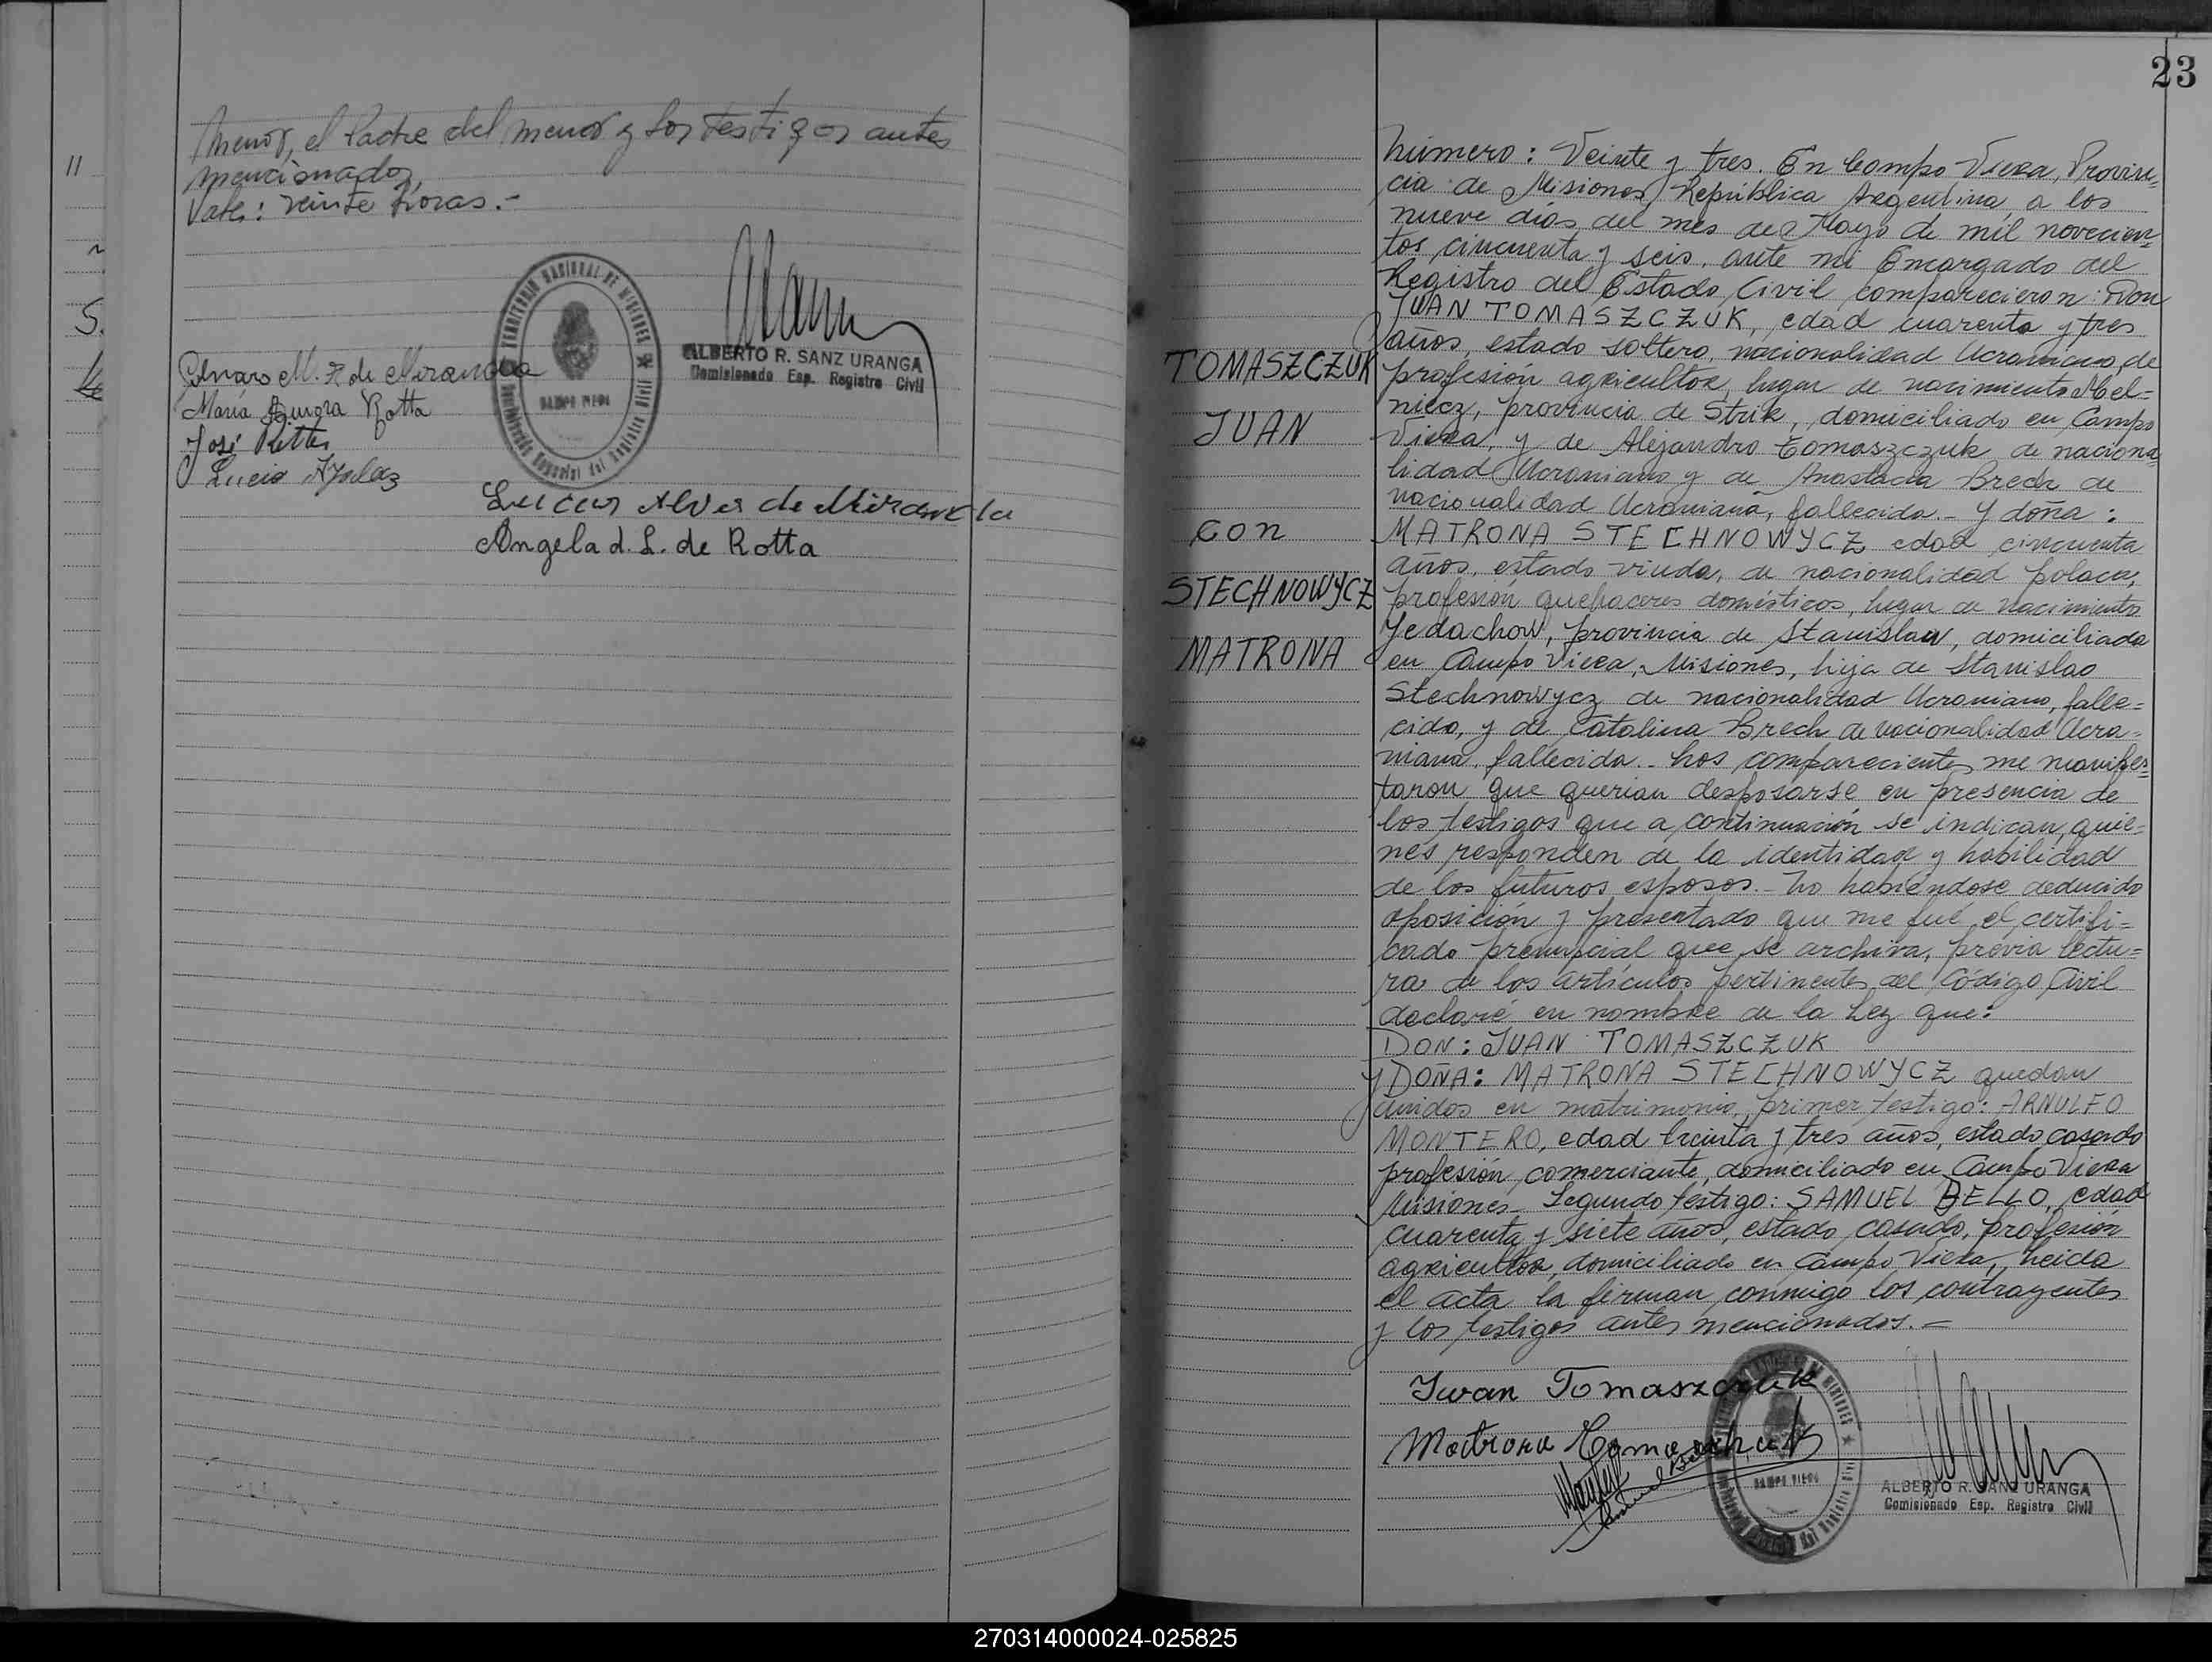 Menor, el Padre del menor y los testigos antes
mencionados,
Vale: veinte horas.-
TERRITORIO NACIONAL DE MISIONES
CAMPO VIERA
ALBERTO R. SANZ URANGA
Comisionado Esp. Registro Civil
M. F. de Miranda
María Rotta
José
Lucio
Lucas Alves de Miranda
Angela d. L. de Rotta
11
S.
23
Número: Veinte y tres. En Campo Viera, Provin-
cia de Misiones, República Argentina, a los
nueve días del mes de Mayo de mil novecien-
tos cincuenta y seis, ante mi Encargado del
Registro del Estado Civil comparecieron: Don
JUAN TOMASZCZUK, edad cuarenta y tres
años, estado soltero, nacionalidad Ucraniano, de
profesión agricultor, lugar de nacimiento Mel-
niecz, provincia de Strik, domiciliado en Campo
Viera, y de Alejandro Tomaszczuk de naciona-
lidad Ucraniano y de Anastacia Brech de
nacionalidad Ucraniana, fallecida.- Y doña:
MATRONA STECHNOWYCZ edad cincuenta
años, estado viuda, de nacionalidad polaca,
profesión quehaceres domésticos, lugar de nacimiento
Yedachow, provincia de Stanislaw, domiciliada
en Campo Viera, Misiones, hija de Stanislao
Stechnowycz de nacionalidad Ucraniano, falle-
cido, y de Catalina Brech de nacionalidad Ucra-
niana, fallecida.- Los comparecientes me manifes-
taron que querian desposarse en presencia de
los testigos que a continuación se indican, quie-
nes responden de la identidad y habilidad
de los futuros esposos.- No habiendose deducido
oposición y presentado que me fué el certifi-
cado prenupcial que se archiva, previa lectu-
ra de los artículos pertinentes del Código Civil
declaré en nombre de la Ley que:
DON: JUAN TOMASZCZUK
y DOÑA: MATRONA STECHNOWYCZ quedan
unidos en matrimonio, primer testigo: ARNULFO
MONTERO, edad treinta y tres años, estado casado
profesión comerciante, domiciliado en Campo Viera
Misiones.- Segundo testigo: SAMUEL BELLO, edad
cuarenta y siete años, estado casado, profesión
agricultor, domiciliado en Campo Viera, Leida
el acta la firman conmigo los contrayentes
y los testigos antes mencionados.-
TOMASZCZUK
JUAN
con
STECHNOWYCZ
MATRONA
Iwan Tomaszczuk
Matrona Tomaszchuk
CAMPO VIERA
ALBERTO R. SANZ URANGA
Comisionado Esp. Registro Civil
270314000024-025825